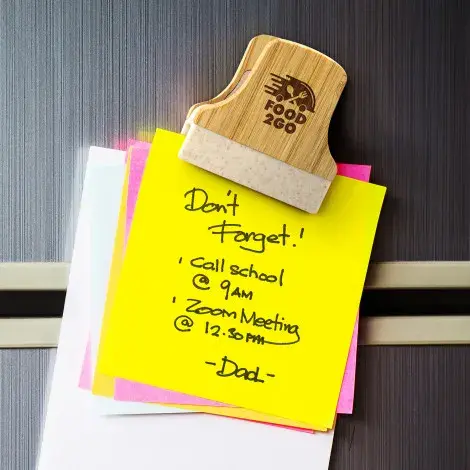 FOOD
2GO
Don't
Forget!
' Call school
@ 9AM
' Zoom Meeting
@ 12.30PM
-Dad-